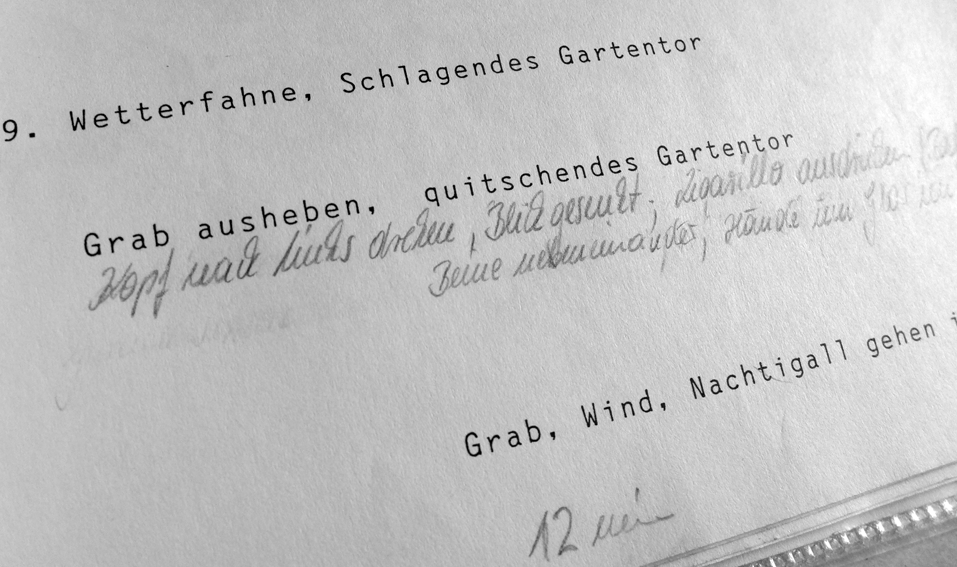 9. Wetterfahne, Schlagendes Gartentor
Grab ausheben, quitschendes Gartentor
Kopf nach links drehen, Blick gesenkt, Zigarillo
Beine nebeneinander, Hände
Grab, Wind, Nachtigall gehen i
12 min